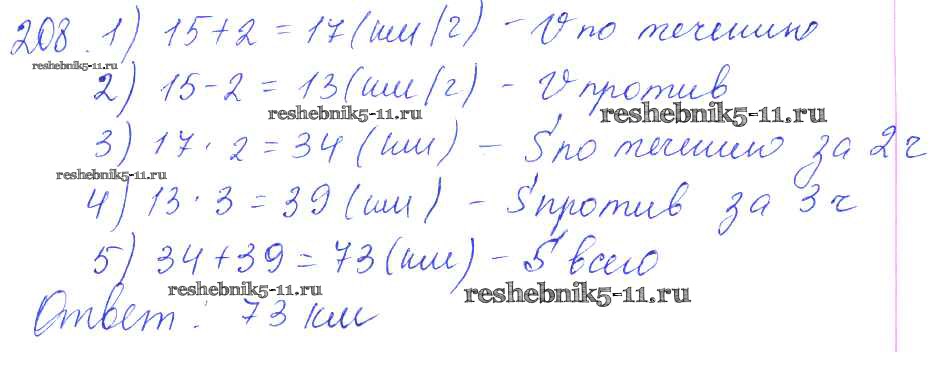 208. 1) 15+2 = 17 (км/ч) - V по течению
reshebnik5-11.ru
2) 15-2 = 13 (км/ч) - V против
reshebnik5-11.ru reshebnik5-11.ru
3) 17 · 2 = 34 (км) - S по течению за 2 ч
reshebnik5-11.ru
4) 13 · 3 = 39 (км) - S против за 3 ч
5) 34 + 39 = 73 (км) - S всего
reshebnik5-11.ru reshebnik5-11.ru
Ответ: 73 км